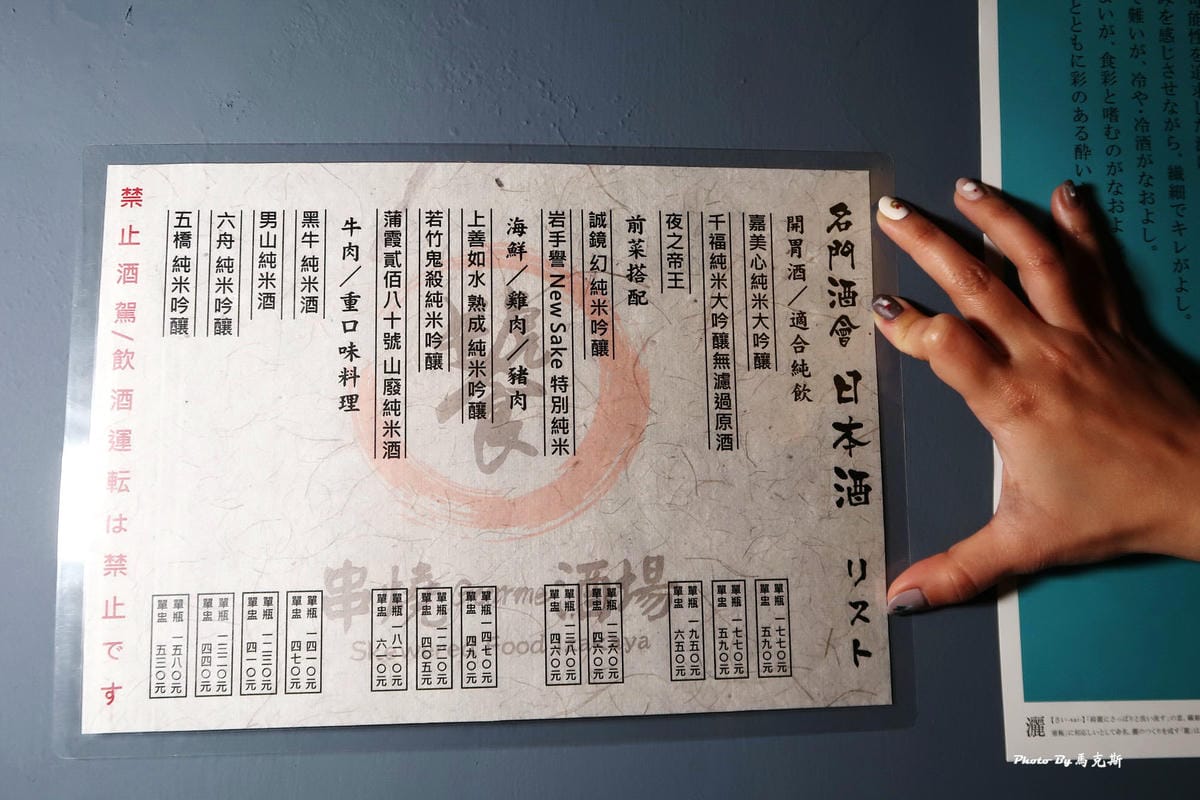 の性を追求
みを感じさせながら、繊細でキレがよし。
で難いが、冷や・冷酒がなおよし。
よいが、食彩と嗜むのがなおよ
とともに彩のある酔い
名門酒會 日本酒 リスト
開胃酒／適合純飲
嘉美心純米大吟釀
單瓶 一七七〇元
單盅 五九〇元
千福純米大吟釀無濾過原酒
單瓶 一七七〇元
單盅 五九〇元
夜之帝王
單瓶 一九五〇元
單盅 六五〇元
前菜搭配
誠鏡 幻 純米吟釀
單瓶 一三六〇元
單盅 四六〇元
岩手譽 New Sake 特別純米
單瓶 一三八〇元
單盅 四六〇元
海鮮／雞肉／豬肉
上善如水 熟成 純米吟釀
單瓶 一四七〇元
單盅 四九〇元
若竹鬼殺純米吟釀
單瓶
單盅 四〇五元
蒲霞貳佰八十號 山廢純米酒
單瓶
單盅
牛肉／重口味料理
黑牛 純米酒
單瓶 一四一〇元
單盅 四七〇元
男山純米酒
單瓶 一二三〇元
單盅 四一〇元
六舟 純米吟釀
單瓶 一三二〇元
單盅 四四〇元
五橋 純米吟釀
單瓶 一五八〇元
單盅 五三〇元
禁止酒駕/飲酒運転は禁止です
饗
串燒 酒場
Photo By 馬克斯